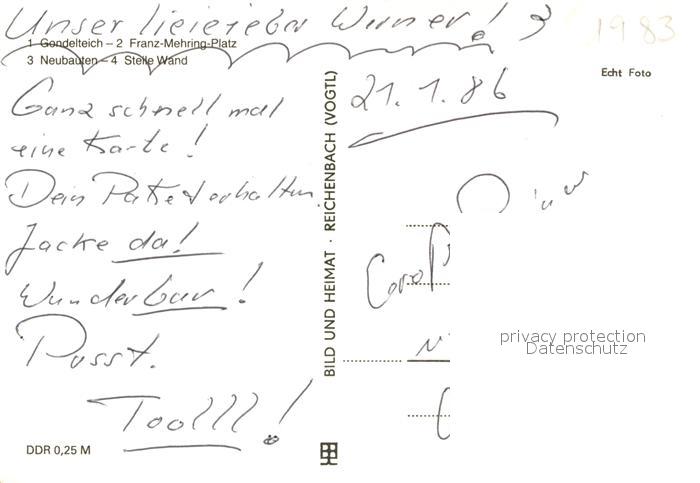 Unser lieieieber Werner!
1983
1 Gondelteich – 2 Franz-Mehring-Platz
3 Neubauten – 4 Steile Wand
Echt Foto
21.1.86
Ganz schnell mal
eine Karte!
Dein Paket erhalten.
Jacke da!
Wunderbar!
Pssst.
Toollll!
BILD UND HEIMAT · REICHENBACH (VOGTL)
privacy protection
Datenschutz
DDR 0,25 M